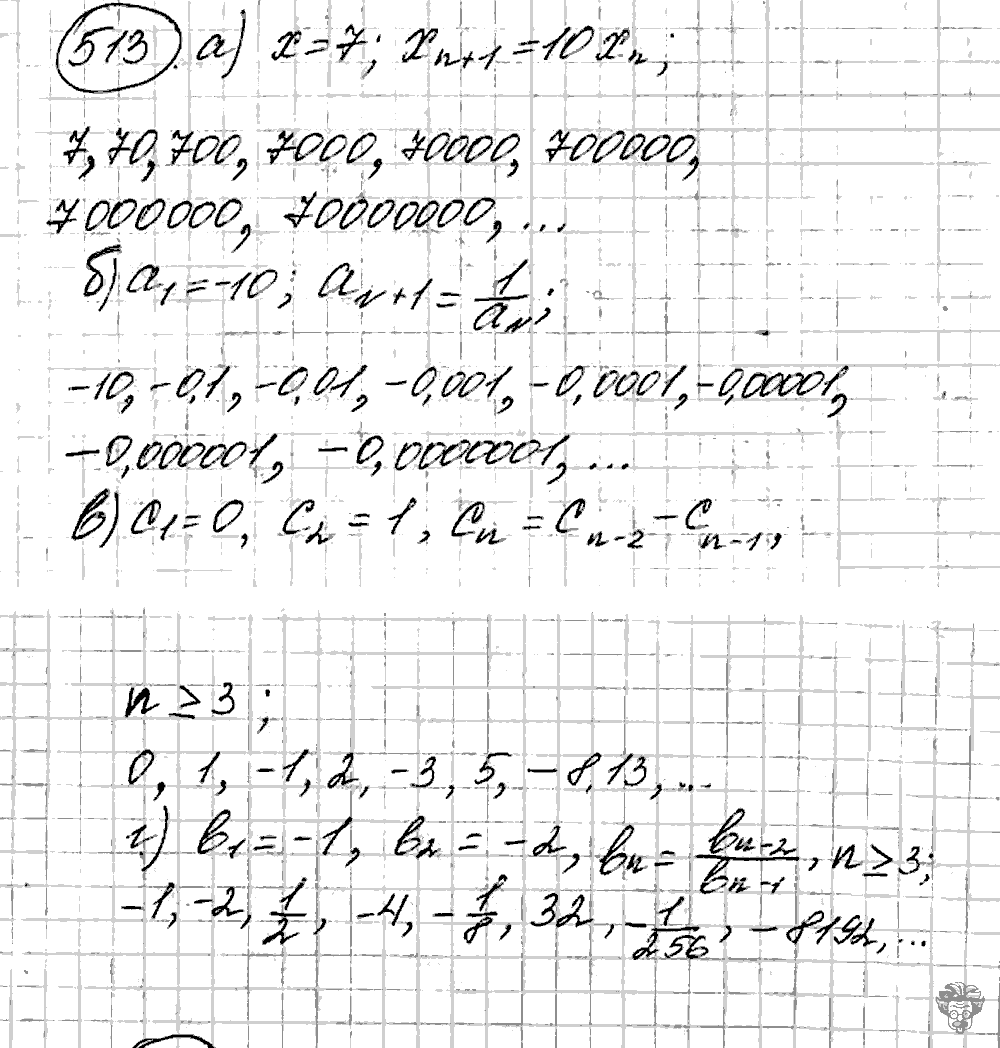 513. а) x=7; xₙ₊₁=10xₙ;
7, 70, 700, 7000, 70000, 700000,
7000000, 70000000, ...
б) a₁=-10; aₙ+1=1/aₙ;
-10, -0,1, -0,01, -0,001, -0,0001, -0,00001,
-0,000001, -0,0000001, ...
в) c₁=0, c₂=1, cₙ=cₙ₋₂-cₙ₋₁,
n≥3;
0, 1, -1, 2, -3, 5, -8,13, ...
г) b₁=-1, b₂=-2, bₙ=bₙ₋₂/bₙ₋₁, n≥3;
-1, -2, 1/2, -4, -1/8, 32, -1/256, -8192, ...